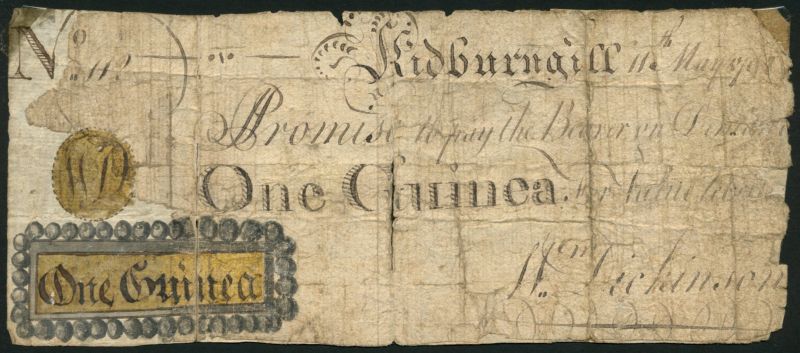 No. 112 Kidburngill 11th May
Promise to pay the Bearer on Demand
WD
One Guinea for Value
Wm Dickinson
One Guinea